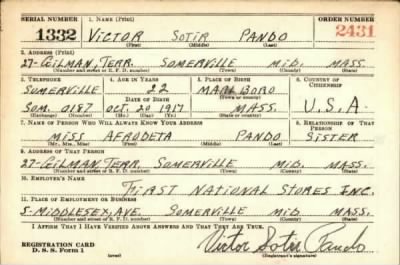 SERIAL NUMBER 1. NAME (Print) ORDER NUMBER
1332 VICTOR SOTIR PANDO 2431
(First) (Middle) (Last)
2. ADDRESS (Print)
27-GILMAN, TERR. SOMERVILLE MID. MASS.
(Number and street or R. F. D. number) (Town) (County) (State)
3. TELEPHONE 4. AGE IN YEARS 5. PLACE OF BIRTH 6. COUNTRY OF CITIZENSHIP
SOMERVILLE 22 MARLBORO
DATE OF BIRTH (Town or county)
SOM. 0187 OCT. 20 1917 MASS. U.S.A.
(Exchange) (Number) (Mo.) (Day) (Yr.) (State or country)
7. NAME OF PERSON WHO WILL ALWAYS KNOW YOUR ADDRESS 8. RELATIONSHIP OF THAT PERSON
MISS AFRODETA PANDO SISTER
(Mr., Mrs., Miss) (First) (Middle) (Last)
9. ADDRESS OF THAT PERSON
27-GILMAN, TERR. SOMERVILLE MID. MASS.
(Number and street or R. F. D. number) (Town) (County) (State)
10. EMPLOYER'S NAME
FIRST NATIONAL STORES INC.
11. PLACE OF EMPLOYMENT OR BUSINESS
5-MIDDLESEX, AVE. SOMERVILLE MID. MASS.
(Number and street or R. F. D. number) (Town) (County) (State)
I AFFIRM THAT I HAVE VERIFIED ABOVE ANSWERS AND THAT THEY ARE TRUE.
REGISTRATION CARD
D. S. S. Form 1 Victor Sotir Pando
(over) (Registrant's signature)